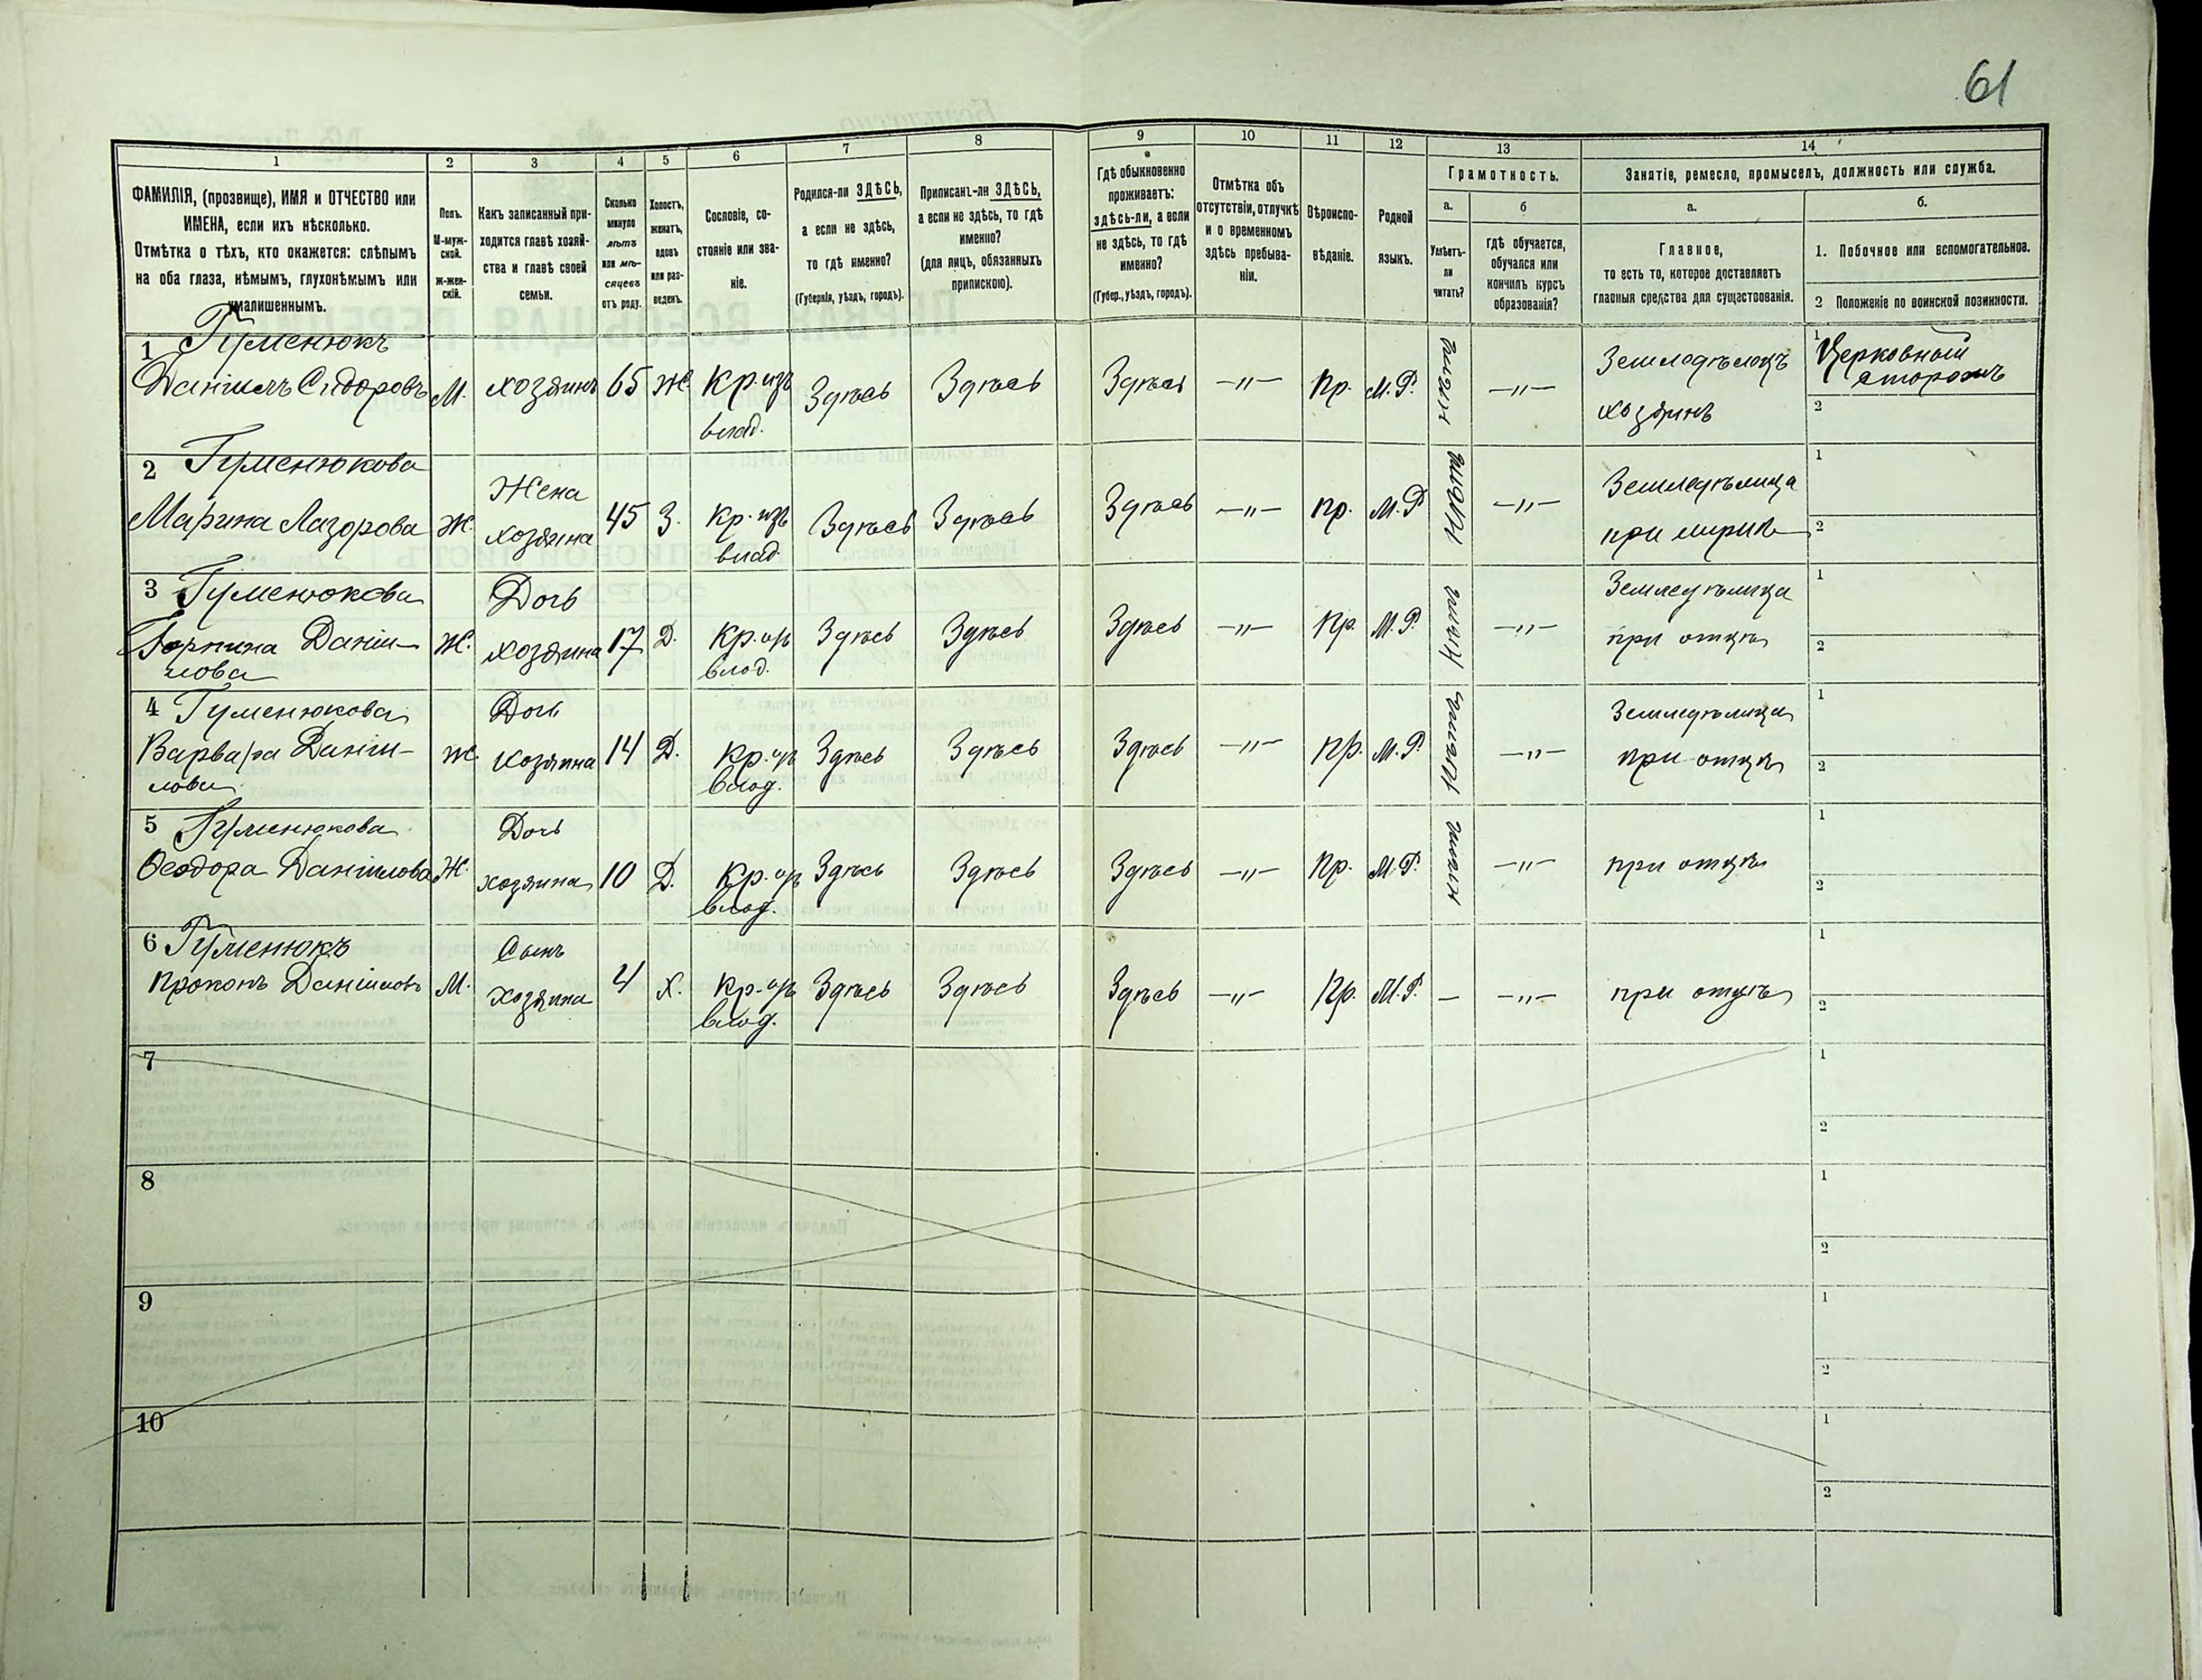 61
1
2
3
4
5
6
7
8
9
10
11
12
13
14
ФАМИЛІЯ, (прозвище), ИМЯ и ОТЧЕСТВО или
ИМЕНА, если ихъ нѣсколько.
Отмѣтка о тѣхъ, кто окажется: слѣпымъ
на оба глаза, нѣмымъ, глухонѣмымъ или
умалишеннымъ.
Полъ.
М-муж-
ской.
ж-жен-
скій.
Какъ записанный при-
ходится главѣ хозяй-
ства и главѣ своей
семьи.
Сколько
минуло
лѣтъ
или мѣ-
сяцевъ
отъ роду.
Холостъ,
женатъ,
вдовъ
или раз-
веденъ.
Сословіе, со-
стояніе или зва-
ніе.
Родился-ли ЗДѢСЬ,
а если не здѣсь,
то гдѣ именно?
(Губернія, уѣздъ, городъ).
Приписанъ-ли ЗДѢСЬ,
а если не здѣсь, то гдѣ
именно?
(для лицъ, обязанныхъ
припискою).
Гдѣ обыкновенно
проживаетъ:
здѣсь-ли, а если
не здѣсь, то гдѣ
именно?
(Губер., уѣздъ, городъ).
Отмѣтка объ
отсутствіи, отлучкѣ
и о временномъ
здѣсь пребыва-
ніи.
Вѣроиспо-
вѣданіе.
Родной
языкъ.
Грамотность.
а.
б
Умѣетъ-
ли
читать?
гдѣ обучается,
обучался или
кончилъ курсъ
образованія?
Занятіе, ремесло, промыселъ, должность или служба.
а.
б.
Главное,
то есть то, которое доставляетъ
главныя средства для существованія.
1. Побочное или вспомогательное.
2 Положеніе по воинской повинности.
1 Гуменюкъ
Даніилъ Сидоровъ
М.
хозяинъ
65
Ж
Кр. изъ
влад.
Здѣсь
Здѣсь
Здѣсь
—"—
Пр.
М.Р.
—"—
Земледѣлецъ
хозяинъ
1 Церковный
сторожъ
2
2 Гуменюкова
Марина Лазорова
Ж.
Жена
хозяина
45
З.
Кр. изъ
влад.
Здѣсь
Здѣсь
Здѣсь
—"—
Пр.
М.Р
—"—
Земледѣлица
при
1
2
3 Гуменюкова
Даніи-
лова
Ж.
Дочь
хозяина
17
Д.
Кр. изъ
влад.
Здѣсь
Здѣсь
Здѣсь
—"—
Пр.
М.Р.
—"—
Земледѣлица
при отцѣ
1
2
4 Гуменюкова
Варвара Даніи-
лова
Ж
Дочь
хозяина
14
Д.
Кр. изъ
влад.
Здѣсь
Здѣсь
Здѣсь
—"—
Пр.
М.Р.
—"—
Земледѣлица
при отцѣ
1
2
5 Гуменюкова
Ѳеодора Даніилова
Ж.
Дочь
хозяина
10
Д.
Кр. изъ
влад.
Здѣсь
Здѣсь
Здѣсь
—"—
Пр.
М.Р.
—"—
при отцѣ
1
2
6 Гуменюкъ
Прокопъ Даніиловъ
М.
Сынъ
хозяина
4
Х.
Кр. изъ
влад.
Здѣсь
Здѣсь
Здѣсь
—"—
Пр.
М.Р.
—
—"—
при отцѣ
1
2
7
1
2
8
1
2
9
1
2
10
1
2